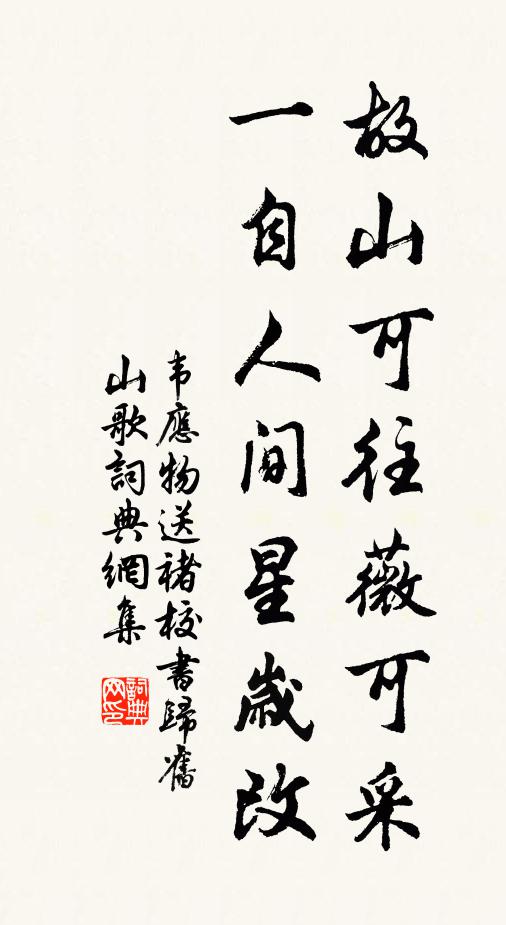 故山可往薇可采
一自人间星歲改
韦應物送褚校書歸舊
山歌詞典網集
詞典
网印